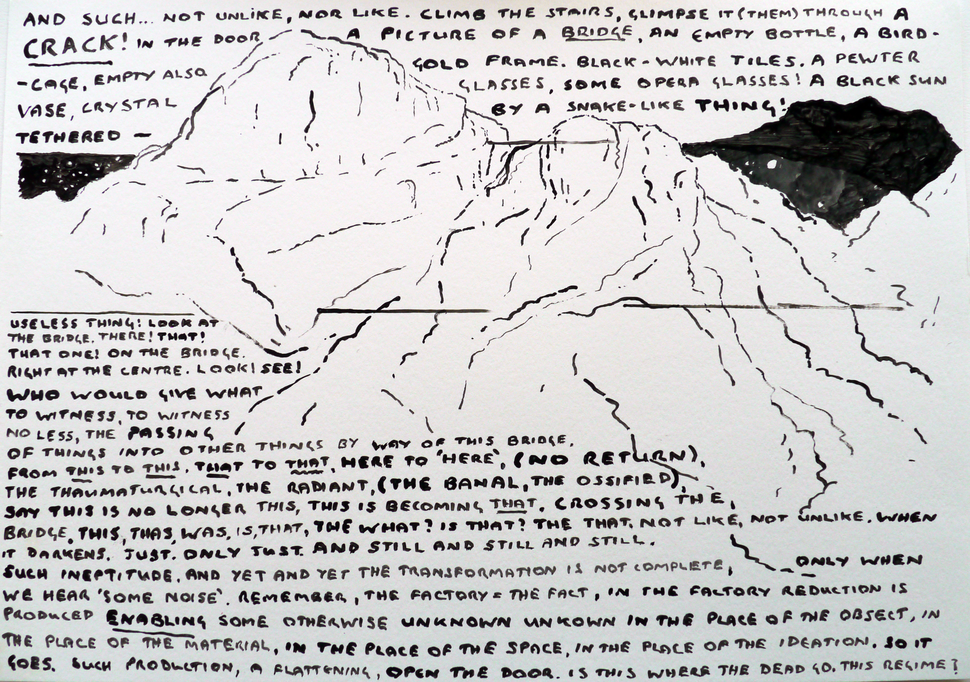 AND SUCH... NOT UNLIKE, NOR LIKE. CLIMB THE STAIRS, GLIMPSE IT (THEM) THROUGH A
CRACK! IN THE DOOR A PICTURE OF A BRIDGE, AN EMPTY BOTTLE, A BIRD-
-CAGE, EMPTY ALSO GOLD FRAME. BLACK-WHITE TILES. A PEWTER
VASE, CRYSTAL GLASSES, SOME OPERA GLASSES! A BLACK SUN
TETHERED — BY A SNAKE-LIKE THING!
USELESS THING! LOOK AT
THE BRIDGE. THERE! THAT!
THAT ONE! ON THE BRIDGE.
RIGHT AT THE CENTRE. LOOK! SEE!
WHO WOULD GIVE WHAT
TO WITNESS, TO WITNESS
NO LESS, THE PASSING
OF THINGS INTO OTHER THINGS BY WAY OF THIS BRIDGE.
FROM THIS TO THIS. THAT TO THAT, HERE TO 'HERE', (NO RETURN),
THE THAUMATURGICAL, THE RADIANT, (THE BANAL, THE OSSIFIED),
SAY THIS IS NO LONGER THIS, THIS IS BECOMING THAT. CROSSING THE,
BRIDGE, THIS, THAS, WAS, IS, THAT, THE WHAT? IS THAT? THE THAT, NOT LIKE, NOT UNLIKE. WHEN
IT DARKENS. JUST. ONLY JUST. AND STILL AND STILL AND STILL.
SUCH INEPTITUDE. AND YET AND YET THE TRANSFORMATION IS NOT COMPLETE, ONLY WHEN
WE HEAR 'SOME NOISE'. REMEMBER, THE FACTORY = THE FACT, IN THE FACTORY REDUCTION IS
PRODUCED ENABLING SOME OTHERWISE UNKNOWN UNKOWN IN THE PLACE OF THE OBJECT, IN
THE PLACE OF THE MATERIAL, IN THE PLACE OF THE SPACE, IN THE PLACE OF THE IDEATION. SO IT
GOES. SUCH PRODUCTION, A FLATTENING, OPEN THE DOOR. IS THIS WHERE THE DEAD GO. THIS REGIME?